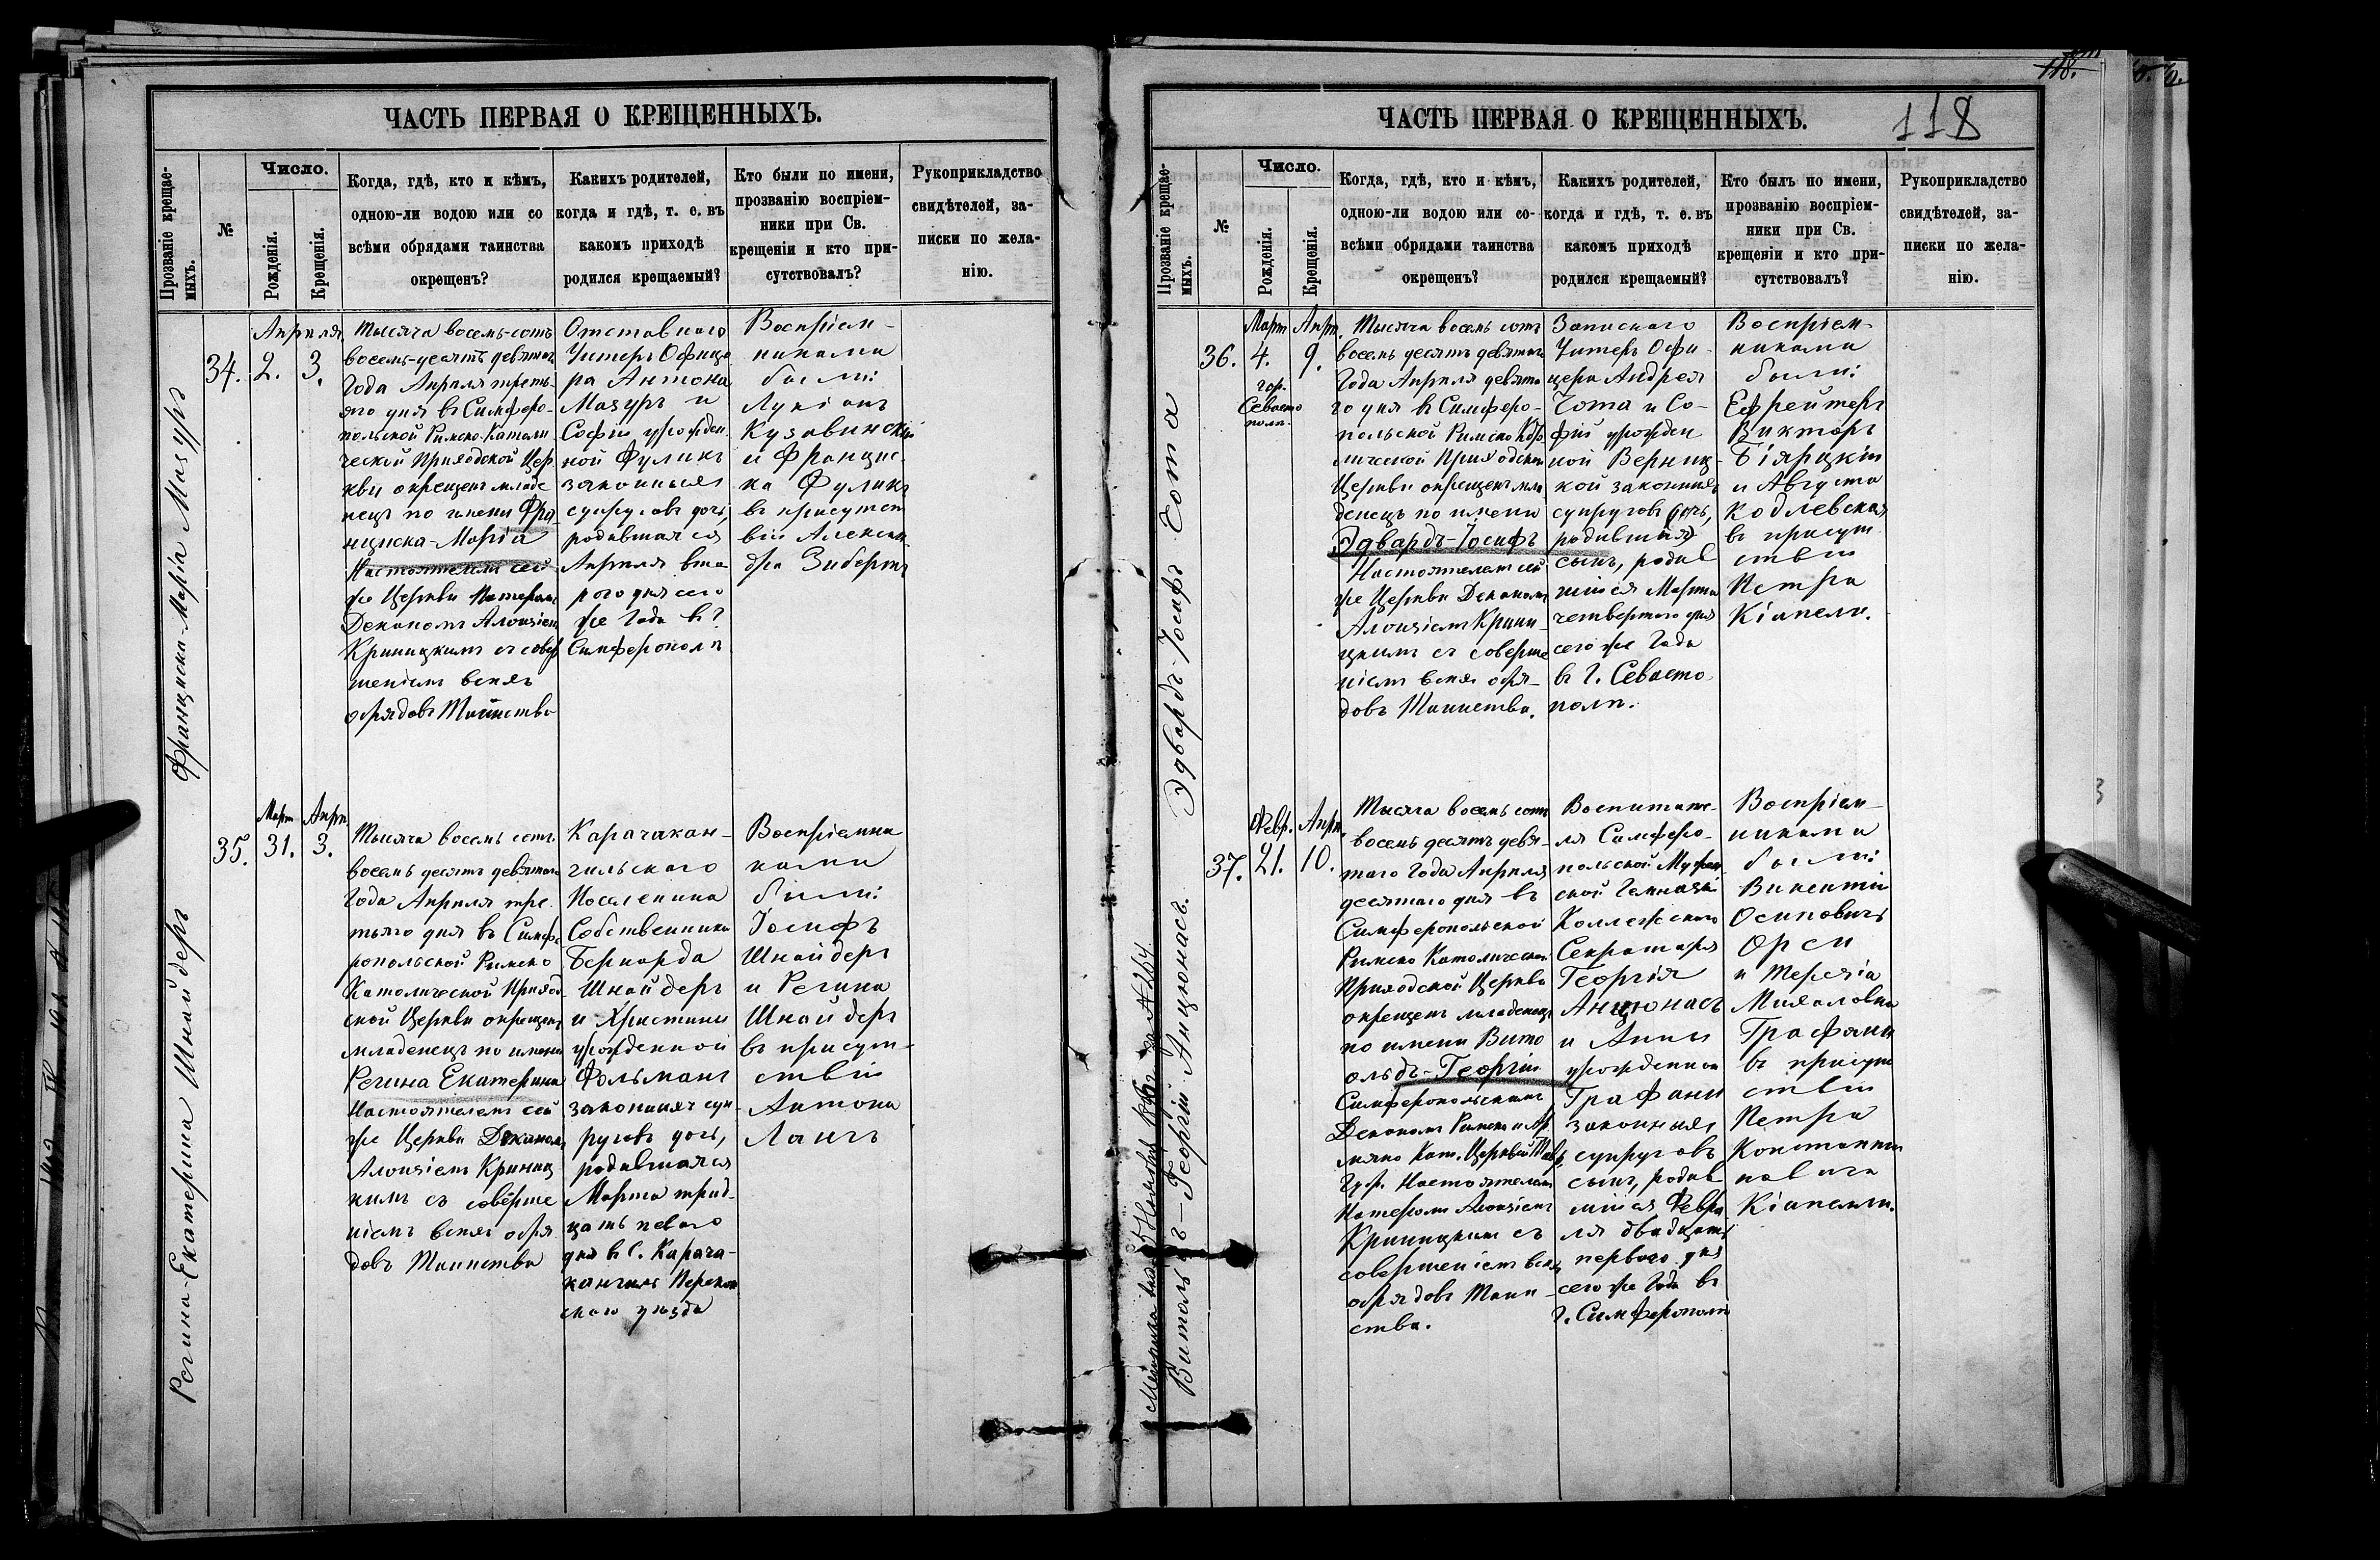 ЧАСТЬ ПЕРВАЯ О КРЕЩЕННЫХЪ.
Прозваніе крещае-
мыхъ.
№
Число.
Рожденія.
Крещенія.
Когда, гдѣ, кто и кѣмъ,
одною-ли водою или со
всѣми обрядами таинства
окрещенъ?
Какихъ родителей,
когда и гдѣ, т. е. въ
какомъ приходѣ
родился крещаемый?
Кто были по имени,
прозванію воспріем-
ники при Св.
крещеніи и кто при-
сутствовалъ?
Рукоприкладство
свидѣтелей, за-
писки по жела-
нію.
Франциска-Марія Мазуръ
34.
Апрѣля
2. 3.
Тысяча восемь-сотъ
восемь-десятъ девятаго
Года Апрѣля треть-
яго дня въ Симферо-
польской Римско-Католи
ческой Приходской Цер
кви окрещенъ младе
нецъ по имени Фра-
нциска-Марія
Настоятелемъ сей
же Церкви Патеромъ
Деканомъ Алоизіем
Криницкимъ съ совер
шеніем всехъ
обрядовъ Таинства
Отставного
Унтеръ Офице
ра Антона
Мазуръ и
Софіи урожден
ной Фуликъ
законныхъ
супруговъ дочь,
родившаяся
Апрѣля вто
рого дня сего
же Года въ г.
Симферополѣ
Воспріем-
никами
были:
Лукіанъ
Кузавинскій
и Францис-
ка Фуликъ
въ присутст
віи Алексан
дра Зибертъ
Регина-Екатерина Шнайдеръ
35.
Март Апрл
31. 3.
Тысяча восемь сотъ
восемь десятъ девятаго
Года Апрѣля тре-
тьяго дня въ Симфе
ропольской Римско
Католической Приход
ской Церкви окрещенъ
младенецъ по имени
Регина Екатерина
Настоятелемъ сей
же Церкви Деканомъ
Алоизіем Криниц
кимъ съ соверше
ніемъ всехъ обря
довъ Таинства
Карачакан-
гильского
Поселенина
Собственника
Бернарда
Шнайдеръ
и Христины
урожденной
Фольманъ
законныхъ суп
руговъ дочь,
родившаяся
Марта трид-
цать певаго
дня въ С. Карача-
кангилъ Перекоп
скаго уѣзда
Воспріемни
ками
были:
Іосифъ
Шнайдеръ
и Регина
Шнайдеръ
въ присут-
ствіи
Антона
Лангъ
118.
118
ЧАСТЬ ПЕРВАЯ О КРЕЩЕННЫХЪ.
Прозваніе крещае-
мыхъ.
№
Число.
Рожденія.
Крещенія.
Когда, гдѣ, кто и кѣмъ,
одною-ли водою или со-
всѣми обрядами таинства
окрещенъ?
Какихъ родителей,
когда и гдѣ, т. е. въ
какомъ приходѣ
родился крещаемый?
Кто былъ по имени,
прозванію воспріем-
ники при Св.
крещеніи и кто при-
сутствовалъ?
Рукоприкладство
свидѣтелей, за-
писки по жела-
нію.
Эдвардъ-Іосифъ
36.
Март Апрл.
4. 9.
гор.
Севасто
поль.
Тысяча восемь сотъ
восемь десятъ девятаго
Года Апрѣля девята
го дня въ Симферо-
польской Римско Като
лической Приходской
Церкви окрещенъ мла
денецъ по имени
Эдвардъ-Іосифъ
Настоятелемъ сей
же Церкви Деканомъ
Алоизіемъ Крини
цкимъ съ соверше
ніемъ всехъ обря-
довъ Таинства.
Запаснаго
Унтеръ Офи
цера Андрея
и Со-
фіи урожден
ной Верниц-
кой законныхъ
супруговъ (дочь,
родившаяся)
сынъ, родив
шійся Марта
четвертого дня
сего же Года
въ г. Севасто
полѣ.
Воспріем-
никами
были:
Ефрейтеръ
Викторъ
Бѣярцкій
и Августа
Кодлевская
въ присут
ствіи
Петра
Кіапели.
Витольдъ-Георгій Анцюнасъ.
37.
Февр. Апрл.
21. 10.
Тысяча восемь сотъ
восемь десятъ девя-
таго Года Апрѣля
десятаго дня въ
Симферопольской
Римско Католической
Приходской Церкви
окрещенъ младенецъ
по имени Вито
ольдъ-Георгій
Симферопольскимъ
Деканомъ Римско и Ар
мяно Кат. Церквей Тавр.
Губ. Настоятелемъ
Патеромъ Алоизіемъ
Криницкимъ съ
совершеніемъ всехъ
обрядовъ Таин-
ства.
Воспитате-
ля Симферо-
польской Муж
ской Гимназіи
Коллежскаго
Секретаря
Георгія
Анцюнасъ
и Анны
урожденной
Графани
законныхъ
супруговъ
сынъ, родив
шійся Февра
ля двадцать
перваго дня
сего же Года въ
г. Симферополѣ
Воспріем-
никами
были:
Викентій
Осиповичъ
Орси
и Терезія
Михаловна
Графани
въ присут
ствіи
Петра
Константи
новича
Кіапели.